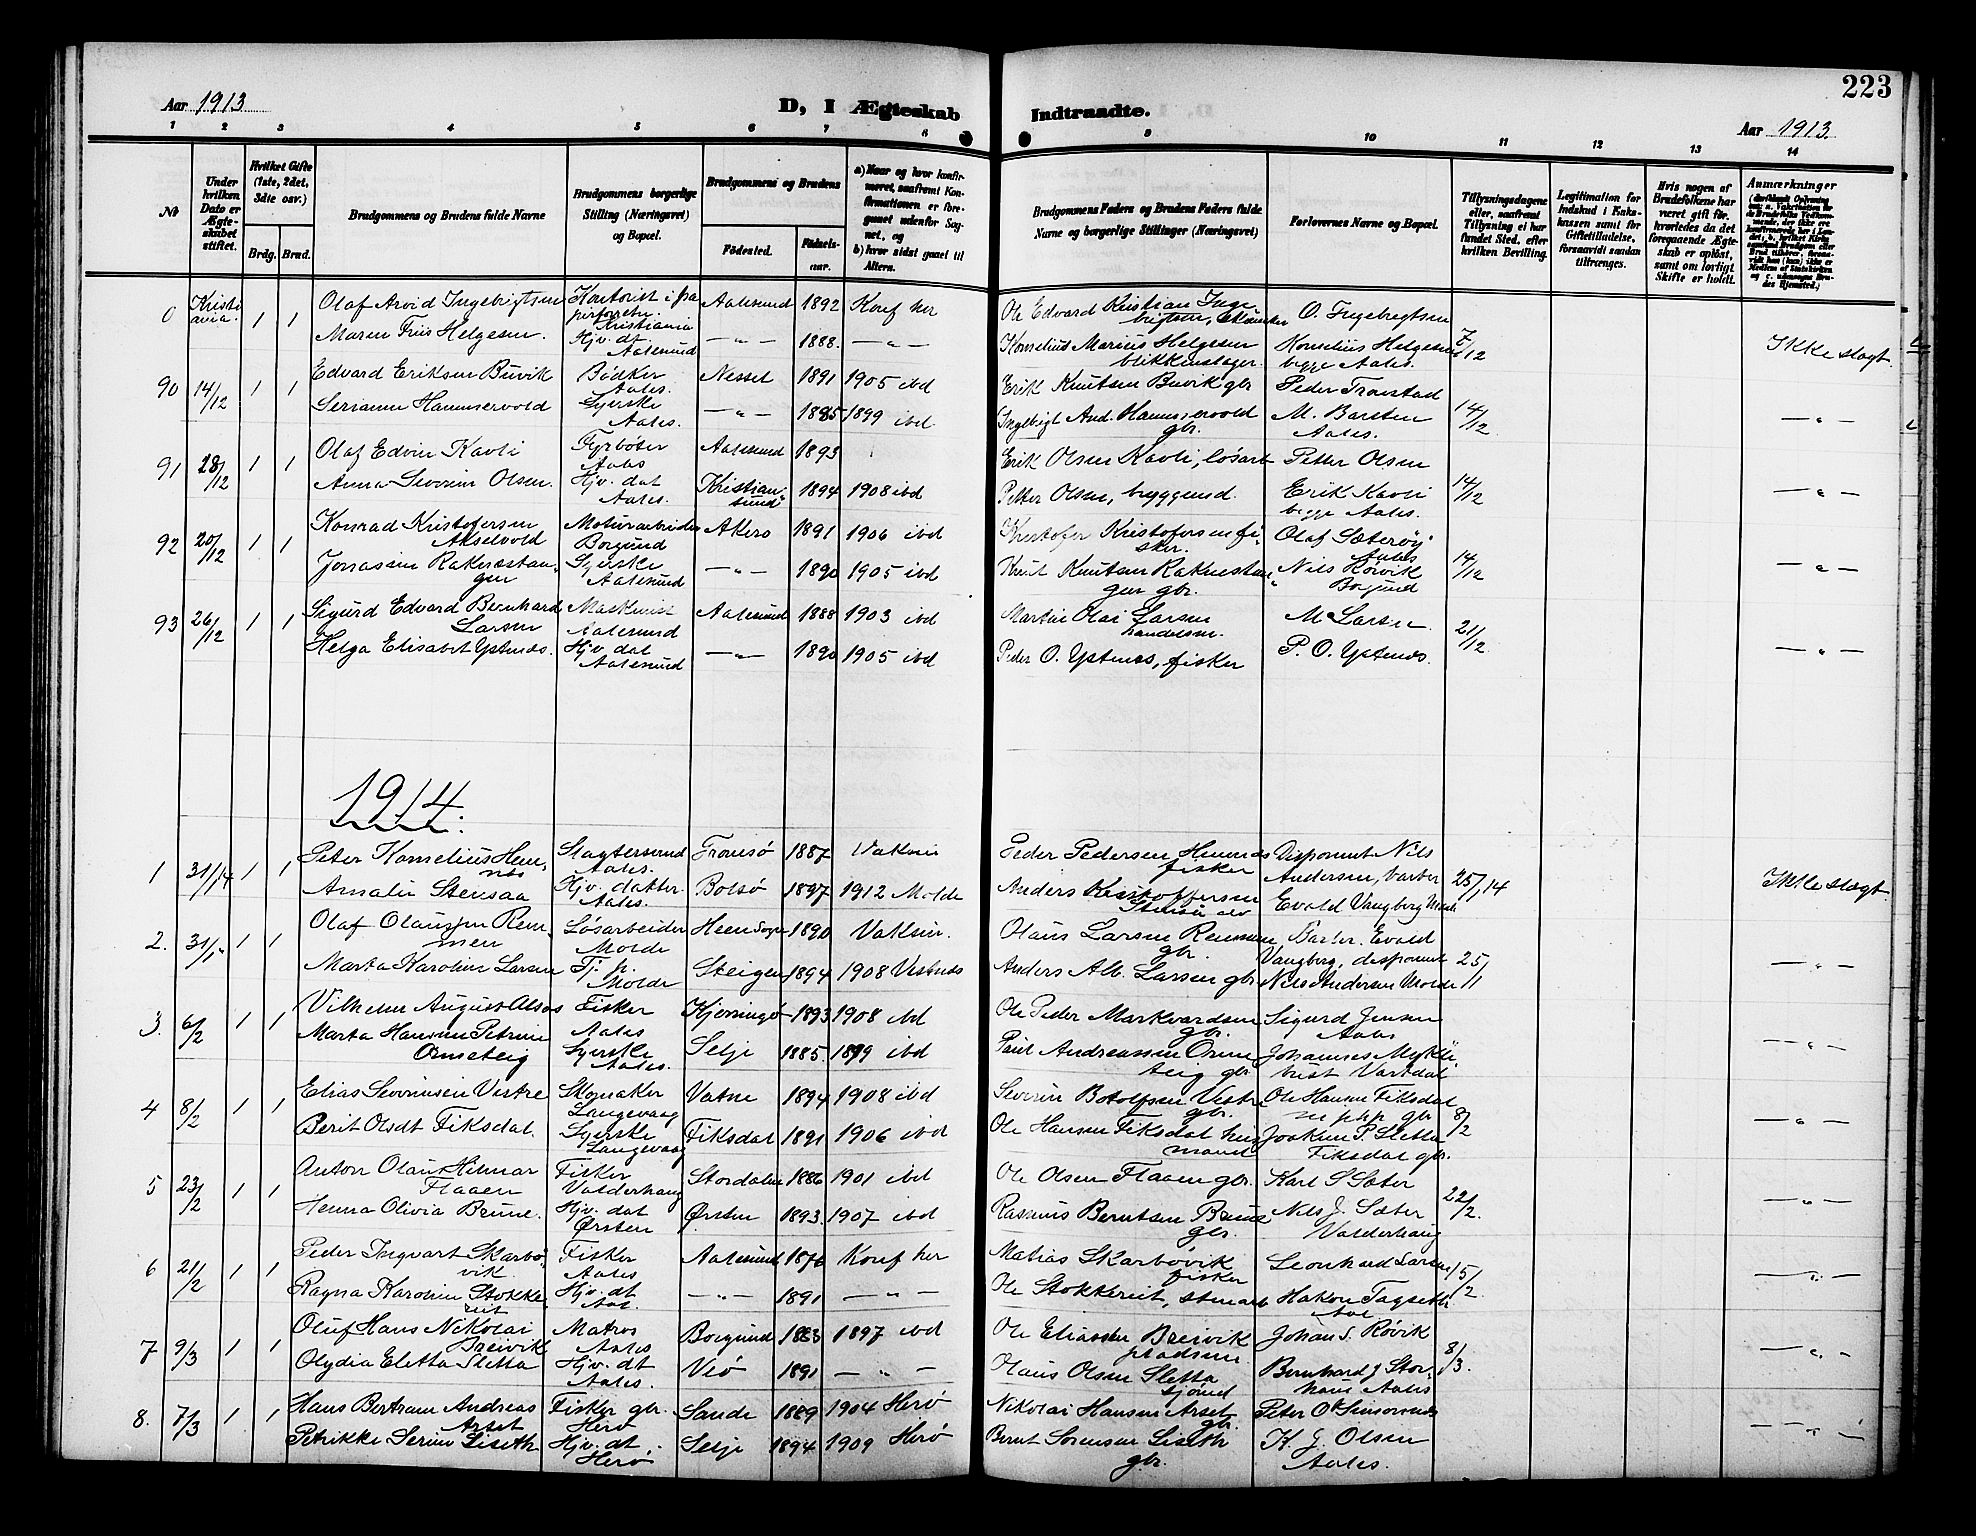 223
Aar 1913
D, I Ægteskab
Indtraadte.
Aar 1913.
1 2 3 4 5 6 7 8 9 10 11 12 13 14
Nr.
Under hvilken Dato er Ægteskabet stiftet.
Hvilket Gifte (1ste, 2det, 3die osv.)
Brdg. Brud.
Brudgommens og Brudens fulde Navne
Brudgommens borgerlige Stilling (Næringsvei) og Bopæl.
Brudgommens og Brudens
Fødested. Fødselsaar.
a) Naar og hvor konfirmeret, saafremt Konfirmationen er foregaaet udenfor Sognet, og
b) hvor sidst gaaet til Alters.
Brudgommens Faders og Brudens Faders fulde Navne og borgerlige Stillinger (Næringsvei)
Forlovernes Navne og Bopæl.
Tillysningsdagene eller, saafremt Tillysning ei har fundet Sted, efter hvilken Bevilling.
Legitimation for Indskud i Enkekassen samt for Giftetilladelse, forsaavidt saadan tiltrænges.
Hvis nogen af Brudefolkene har været gift før, hvorledes da det foregaaende Ægteskab er opløst, samt om lovligt Skifte er holdt.
Anmærkninger
0 Kristiania. 1 1 Olaf Arvid Ingebrigtsen Kontorist Kristiania Aalesund 1892 Konf her Ole Edvard Kristian Ingebrigtsen, O. Ingebrigtsen
Maren Friis Helgesen. Hjv. dt Aalesund —"— 1888. —"— Konselius Marius Helgesen blikkenslager. Konselius Helgesen begge Aales. 7/12 Ikke slagt.
90 14/12 1 1 Edvard Eriksen Buvik Bødker Aales. Nesset 1891 1905 ibd Erik Knutsen Buvik gbr Peder Tronstad
Serianna Hammervold Syerske Aales. —"— 1885 1899 ibd. Ingebrigt And. Hammervold gbr. M. Barsten Aales. 14/12 —"—
91 28/12 1 1 Olaf Edvin Kavli Fyrbøter Aales Aalesund 1893 Erik Olsen Kavli, løsarb Petter Olsen
Anna Severin Olsen. Hjv. dat Aales. Kristiansund 1894 1908 ibd Petter Olsen, bryggemd. Erik Kavli begge Aales. 14/12 —"—
92 20/12 1 1 Konrad Kristofersen Akselvold Motorarbeider Borgund Akerø 1891 1906 ibd Kristofer Kristofersen fisker. Olaf Sæterøy Aales
Syerske Aalesund —"— 1890 1905 ibd Knut Knutsen gbr. Nils Røvik Borgund 14/12 —"—
93 26/12 1 1 Sigurd Edvard Bernhard Larsen Maskinist Aalesund Aalesund 1888 1903 ibd Martin Olai Larsen handelsm. M Larsen
Helga Elisabet Ystenes. Hjv. dat Aalesund —"— 1890 1905 ibd Peder O. Ystenes, fisker P. O. Ystenes. 21/12 —"—
1914.
1 31/1 14 1 1 Peter Konselius Hennes Slagtersvend Aales. Tromsø 1887 Vaksin Peder Pedersen Hennes fisker Disponent Nils
Amalie Stensaa Hjv. datter Aales. Bolsø 1897 1912 Molde Anders Kristoffersen Andersen, barber Evald Vangberg Molde 25/1 14 Ikke slagt.
2. 31/1 " 1 1 Olaf Olaussen Remmen Løsarbeider Molde Heen Sogn 1890 Vaksin. Olaus Larsen Remmen, gbr. Barber. Evald
Marta Karoline Larsen Tj. p. Molde Steigen 1894 1908 Vestnes Anders Alb. Larsen gbr Vangberg, disponent Nils Andersen Molde 25/1 —"—
3. 6/2 1 1 Vilhelm August Alsos Fisker Aales Kjerringø 1893 1908 ibd Ole Peder Markvardsen gbr. Sigurd Jensen Aales
Marta Hansine Petrine Ormsteig Syerske Aales. Selje 1885. 1899 ibd Paul Andreassen Ormsteig gbr Johannes Myklebust Vartdal —"—
4 8/2 1 1 Elias Severinsen Vestre Skomaker Langevaag Vatne 1894 1908 ibd Severin Botolfsen Vestre gbr. Ole Hansen Fiksdal
Berit Olsdt Fiksdal. Syerske Langevaag Fiksdal 1891 1906 ibd Ole Hansen Fiksdal husmand Joakim P. Sletta Fiksdal gbr. 8/2 —"—
5 23/2 1 1 Anton Olaus Hilmar Flaaen Fisker Valderhaug Stordalen 1886 1901 ibd Ole Olsen Flaaen gbr. Karl S Sæter
Henna Olivia Brune. Hjv. dat Ørsten Ørsten 1893. 1907 ibd Rasmus Berntsen Brune gbr. Nils J. Sæter Valderhaug 22/2. —"—
6 21/2 1 1 Peder Ingvart Skarbøvik. Fisker Aales Aalesund 1876 Konf her Matias Skarbøvik fisker Leonhard Larsen
Ragna Karoline Stokkereit Hjv. dt Aal. —"— 1891 —"— Ole Stokkereit, Hakon Tagseth Aal 15/2 —"—
7 9/3 1 1 Oluf Hans Nikolai Breivik Matros Aales Borgund 1883 1897 ibd Ole Eliassen Breivik pladsm. Johan S. Røvik
Olydia Eletta Sletta Hjv. dt Aales. Veø 1891 —"— Olaus Olsen Sletta sjømd Bernhard J Storhaug Aales 8/3. —"—
8. 7/3 1 1 Hans Bertram Andreas Arset Fisker gbr. Herø Sande 1889 1904 Herø Nikolai Hansen Arset gbr. Peter O
Petrikke Serine Liseth Hjv. dt Herø Selje 1894 1909 Herø Bernt Sørensen Liseth gbr. K J. Olsen Aales. —"—